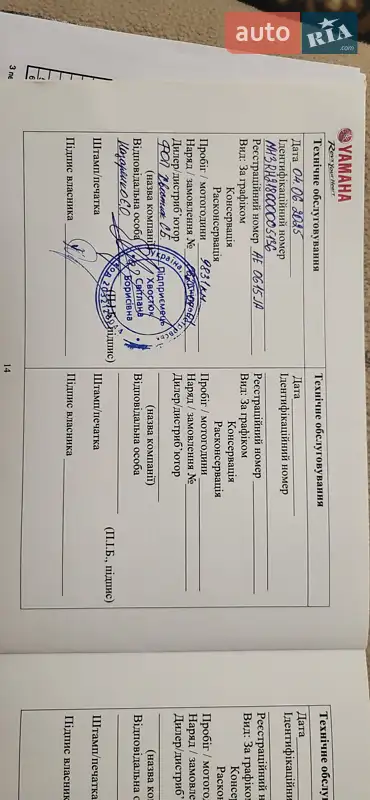 auto RIA.com
YAMAHA
Revs Your Heart
Технічне обслуговування
Дата 04.06.2025
Ідентифікаційний номер
Реєстраційний номер АЕ 0615 JA
Вид: За графіком
Консервація
Расконсервація
Пробіг / мотогодини 9831 км
Наряд / замовлення №
Дилер/дистриб'ютор
ФОП Хвостик С.Б.
(назва компанії)
Відповідальна особа
Штамп/печатка
(П.І.Б., підпис)
Підпис власника
Україна
Підприємець
Хвостик
Світлана
Борисівна
Технічне обслуговування
Дата
Ідентифікаційний номер
Реєстраційний номер
Вид: За графіком
Консервація
Расконсервація
Пробіг / мотогодини
Наряд / замовлення №
Дилер/дистриб'ютор
(назва компанії)
Відповідальна особа
(П.І.Б., підпис)
Штамп/печатка
Підпис власника
14
Технічне обслу
Дата
Ідентифікаційни
Реєстраційний номер
Вид: За графіком
Консер
Раскон
Пробіг / мотого
Наряд / замовле
Дилер/дистриб'
(назва ко
Відповідальна о
Штамп/печатка
Підпис власник